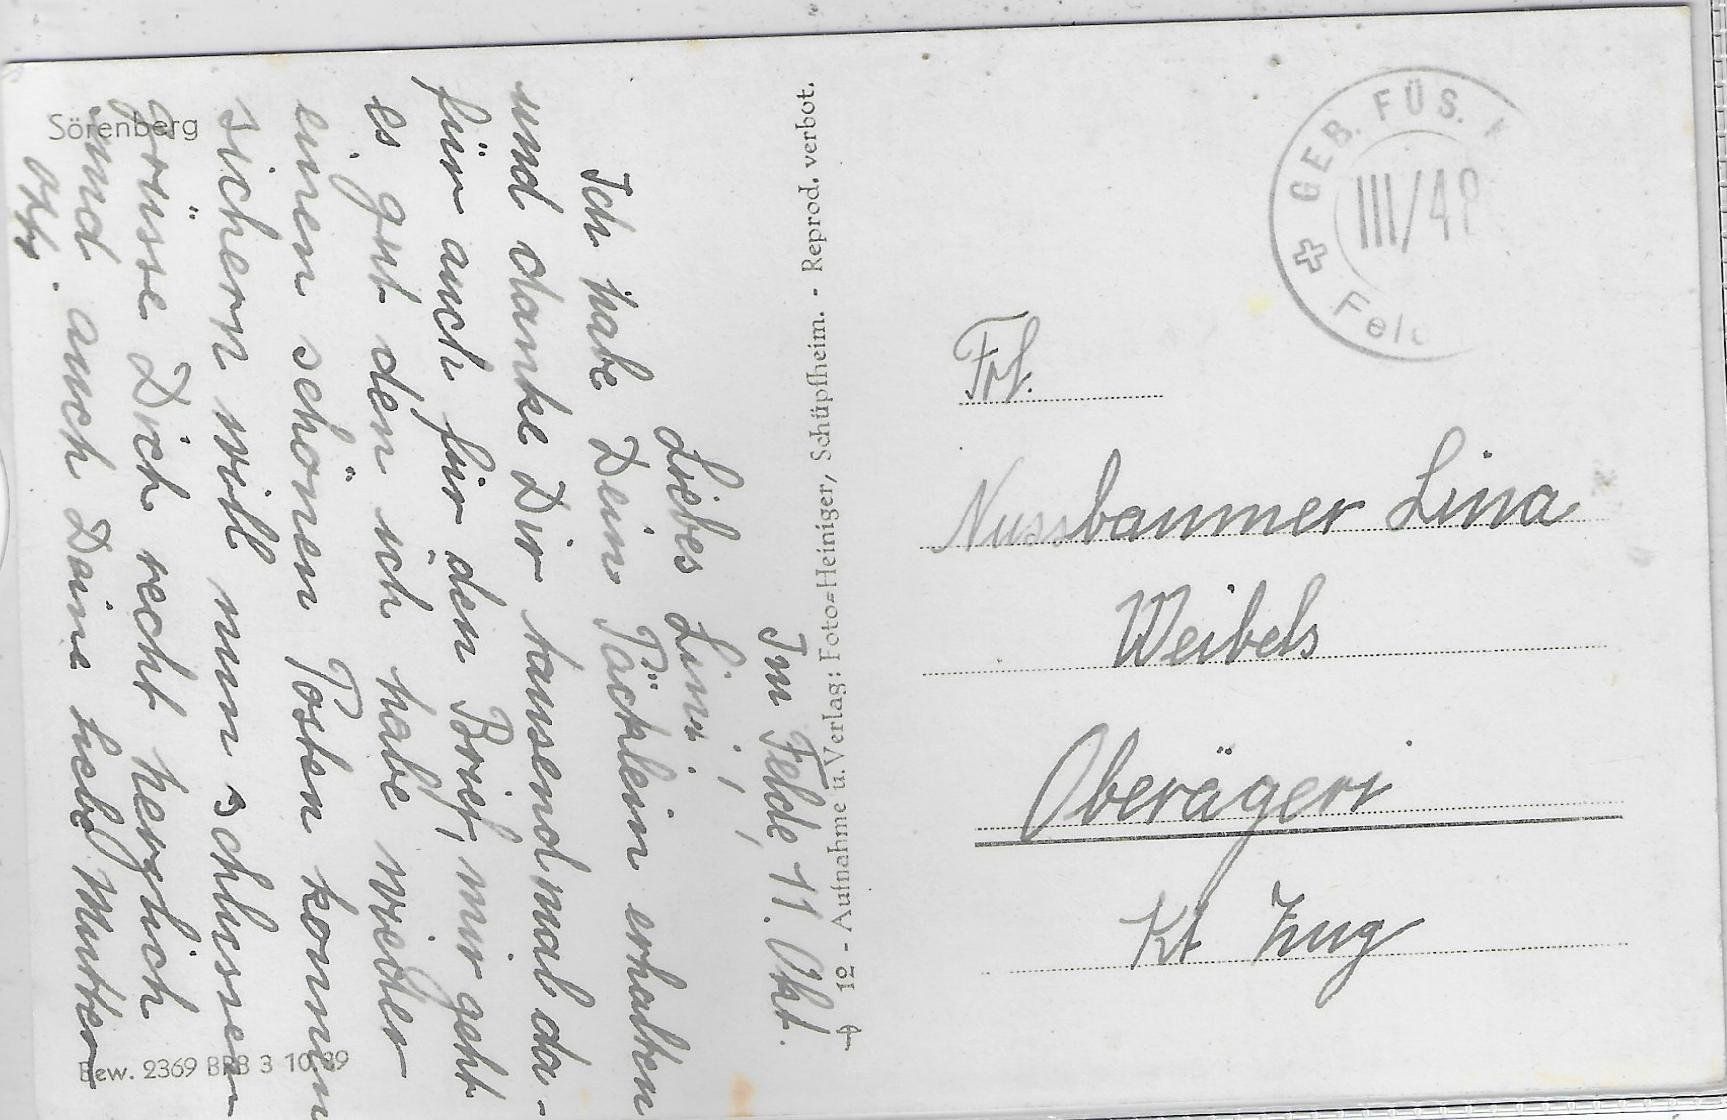 Sörenberg
Im Felde 11. Okt.
Liebes Lini,!
Ich habe Dein Päcklein erhalten
und danke Dir tausendmal da-
für auch für den Brief, mir geht
es gut den ich habe wieder
einen schönen Posten kommen
sichern will nun schlussen
grüsse Dich recht herzlich
und auch Deine liebe Mutter
12 - Aufnahme u. Verlag: Foto=Heiniger, Schüpfheim. - Reprod. verbot.
Bew. 2369 BRB 3 10.39
GEB. FÜS.
III/48
Feld
Frl.
Nussbaumer Lina
Weibels
Oberägeri
Kt Zug